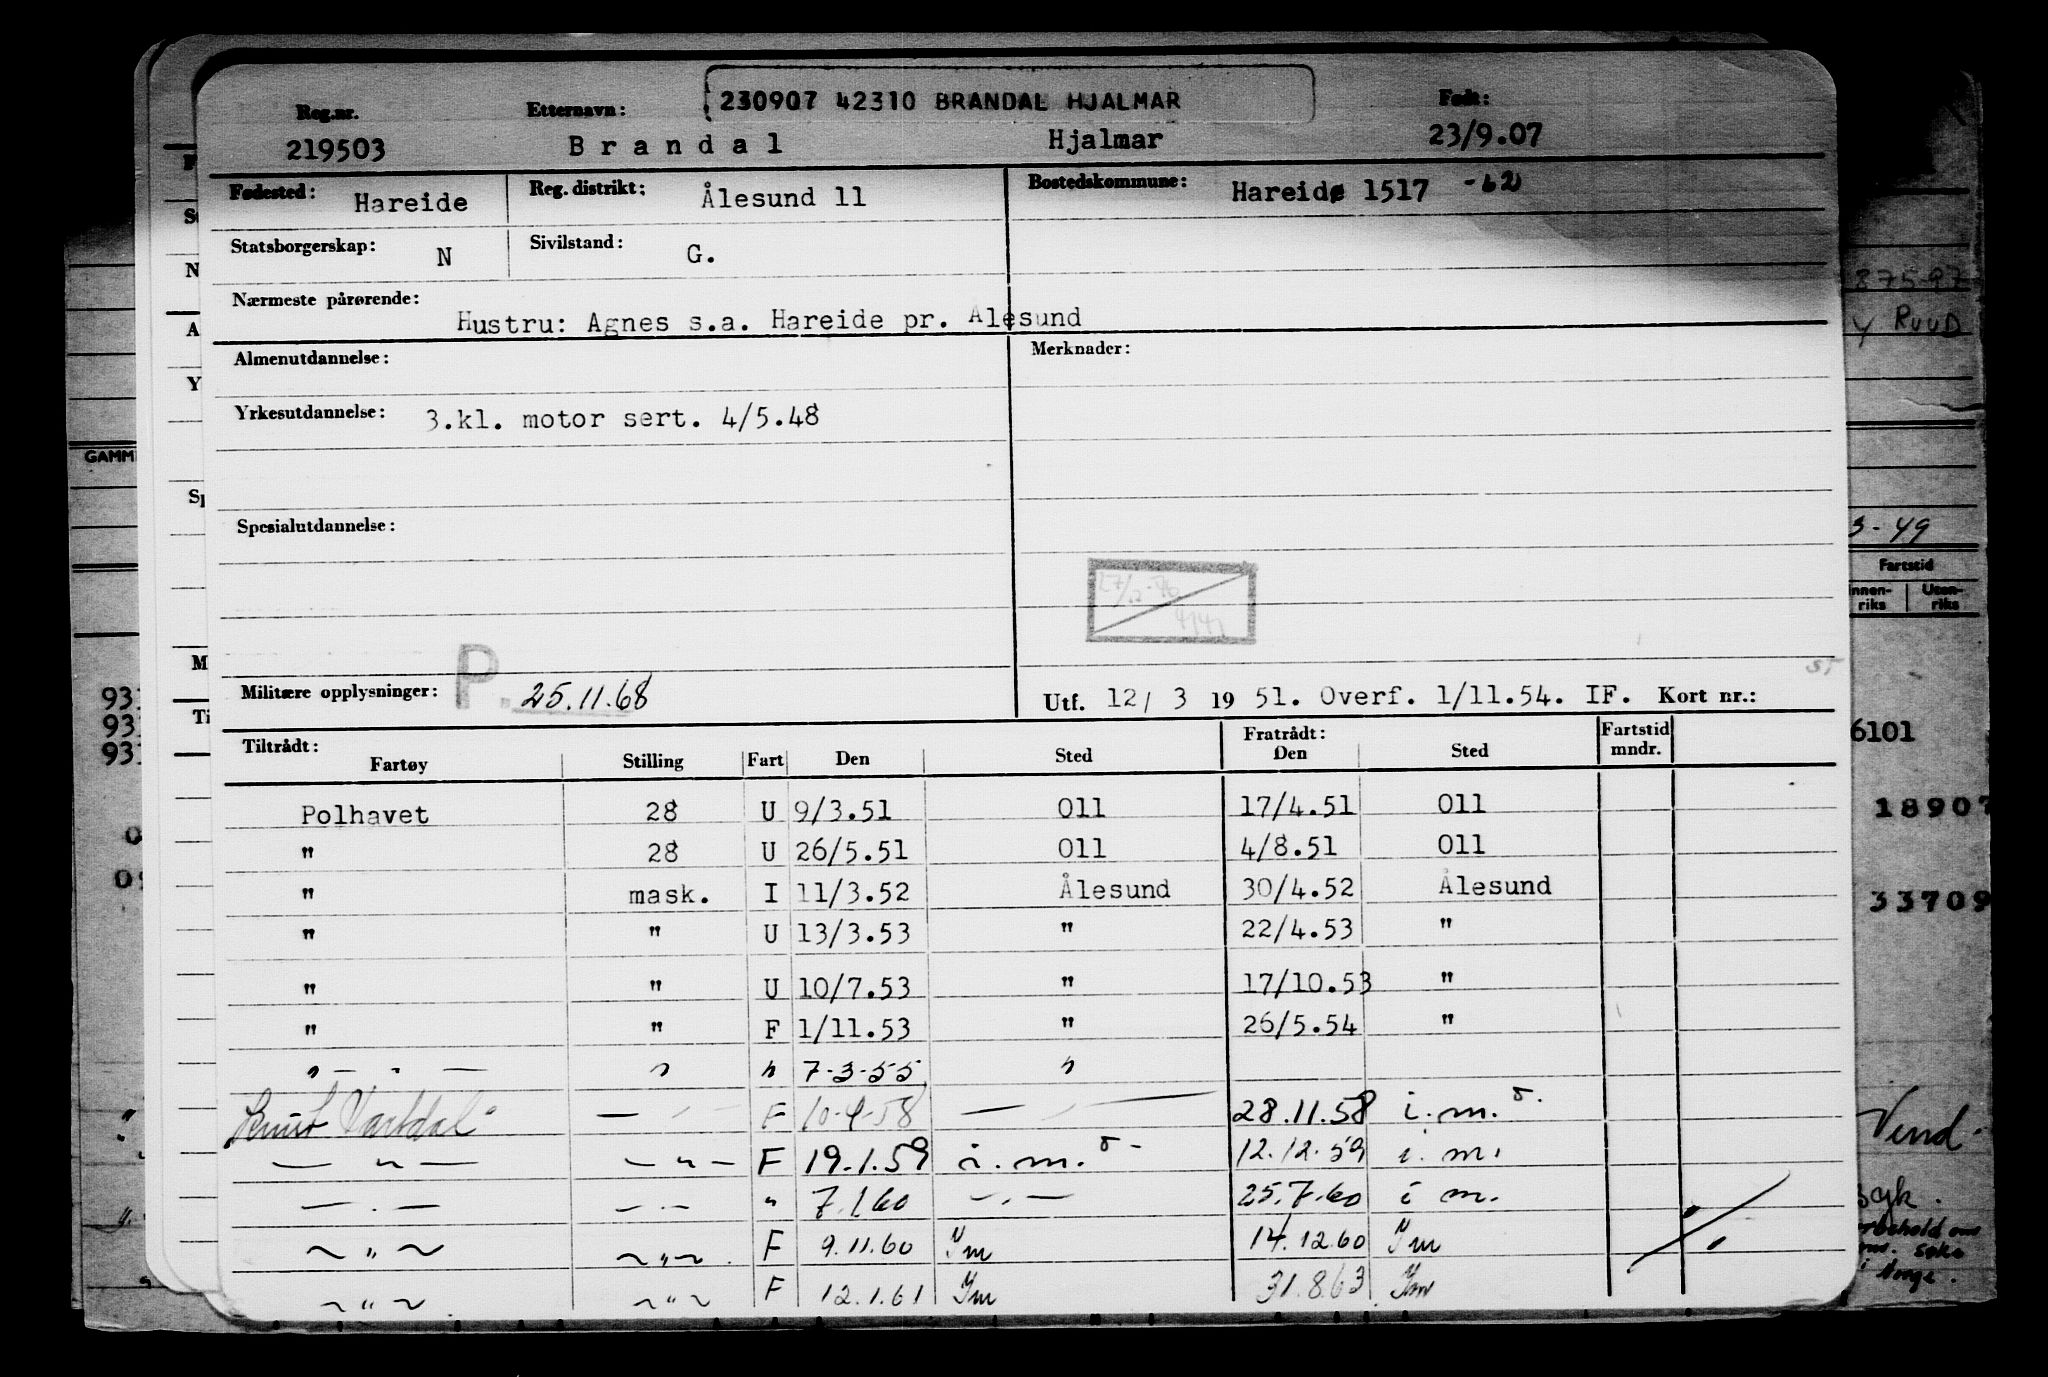 230907 42310 BRANDAL HJALMAR
Reg.nr. Etternavn: Født:
219503 Brandal Hjalmar 23/9.07
Fødested: Hareide Reg. distrikt: Ålesund 11 Bostedskommune: Hareide 1517 -62
Statsborgerskap: N Sivilstand: G.
Nærmeste pårørende: Hustru: Agnes s.a. Hareide pr. Ålesund
Almenutdannelse: Merknader:
Yrkesutdannelse: 3.kl. motor sert. 4/5.48
Spesialutdannelse:
Militære opplysninger: P. 25.11.68 Utf. 12/ 3 19 51. Overf. 1/11.54. IF. Kort nr.:
Tiltrådt: Fratrådt: Fartstid
Fartøy Stilling Fart Den Sted Den Sted mndr.
Polhavet 28 U 9/3.51 011 17/4.51 011
" 28 U 26/5.51 011 4/8.51 011
" mask. I 11/3.52 Ålesund 30/4.52 Ålesund
" " U 13/3.53 " 22/4.53 "
" " U 10/7.53 " 17/10.53 "
" " F 1/11.53 " 26/5.54 "
" " " 7-3-55 "
Vartdal F 28.11.58 i.m.
— " — — " — F 19.1.59 i.m. 12.12.59 i.m.
— " — — " — " 7.1.60 — " — 25.7.60 i m.
~ " ~ ~ " ~ F 9.11.60 Im 14.12.60 Im
~ " ~ ~ " ~ F 12.1.61 Im 31.8.63 Im
GAMM
875-97
RUUD
3-49
Fartstid
Innen-
riks
Uten-
riks
6101
18907
33709
Vend